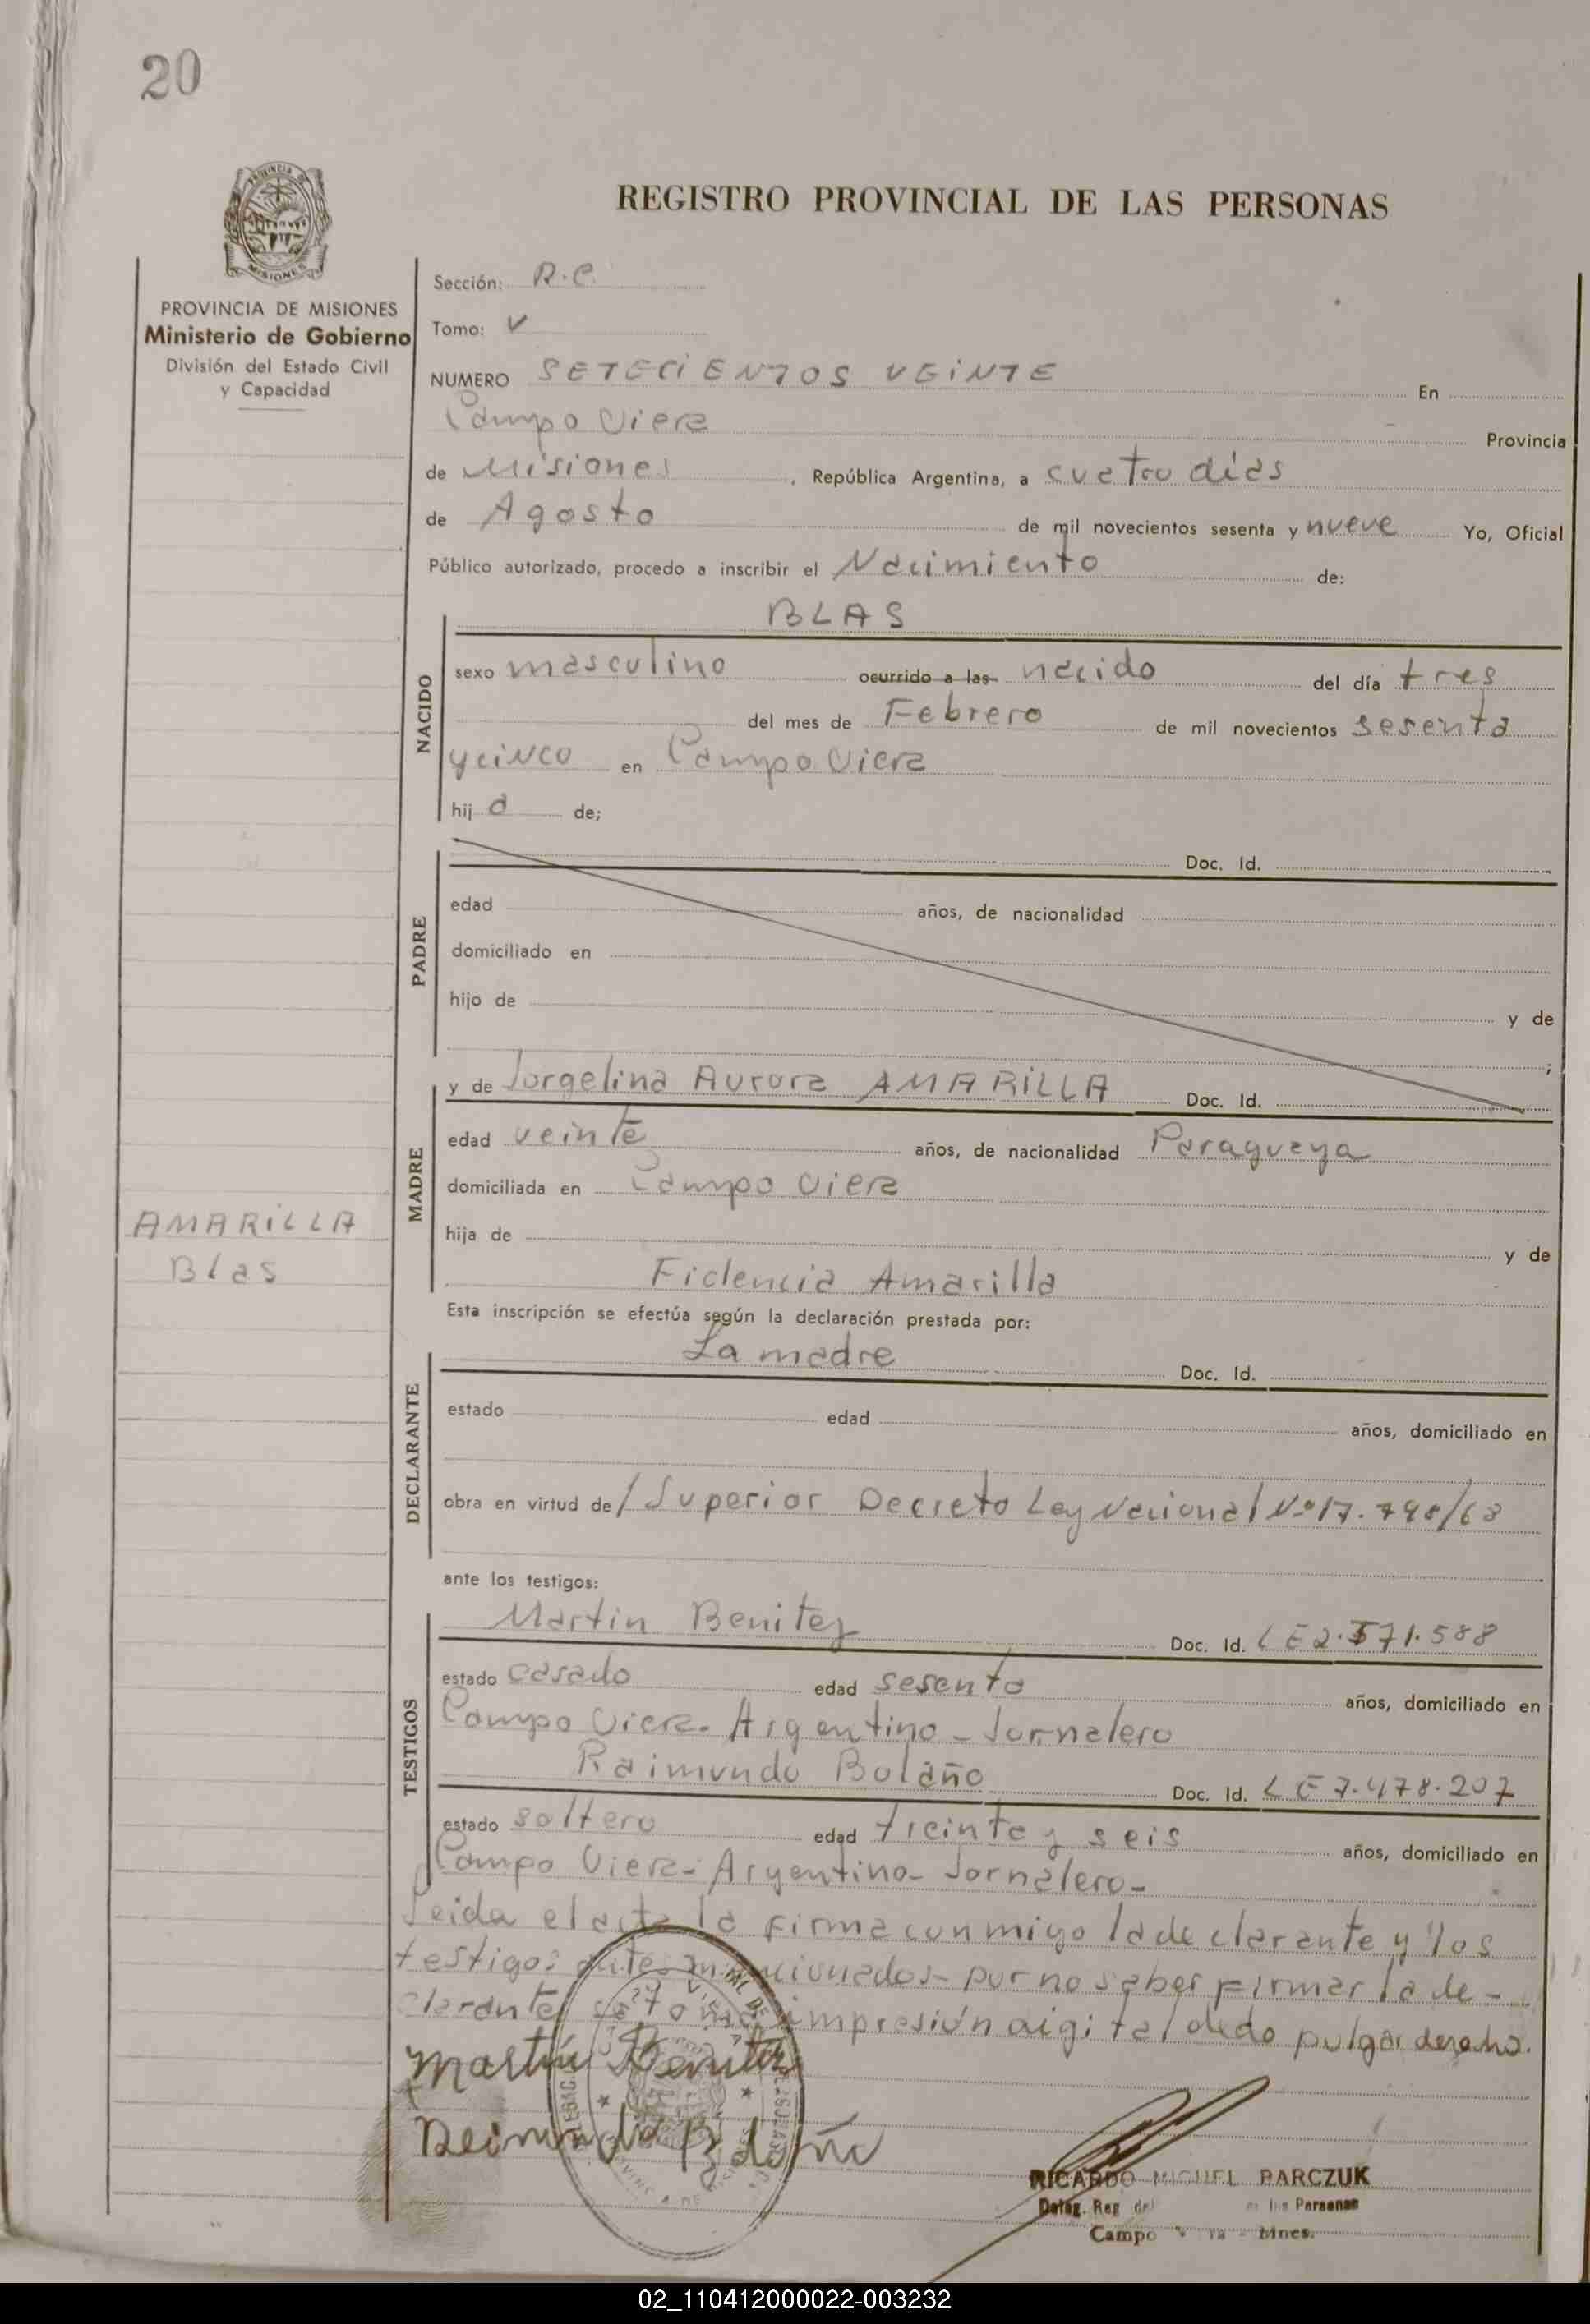 20
REGISTRO PROVINCIAL DE LAS PERSONAS
PROVINCIA DE MISIONES
Ministerio de Gobierno
División del Estado Civil
y Capacidad
Sección: R.C.
Tomo: V
NUMERO SETECIENTOS VEINTE En
Campo Viera Provincia
de Misiones, República Argentina, a cuatro días
de Agosto de mil novecientos sesenta y nueve Yo, Oficial
Público autorizado, procedo a inscribir el Nacimiento de:
BLAS
NACIDO
sexo masculino ocurrido a las nacido del día tres
del mes de Febrero de mil novecientos sesenta
y cinco en Campo Viera
hijo de;
PADRE
Doc. Id.
edad años, de nacionalidad
domiciliado en
hijo de y de
;
MADRE
y de Jorgelina Aurora AMARILLA Doc. Id.
edad veinte años, de nacionalidad Paraguaya
domiciliada en Campo Viera
hija de y de
Fidencia Amarilla
AMARILLA
Blas
Esta inscripción se efectúa según la declaración prestada por:
DECLARANTE
La madre Doc. Id.
estado edad años, domiciliado en
obra en virtud de/ Superior Decreto Ley Nacional Nº 17.798/68
ante los testigos:
TESTIGOS
Martin Benitez Doc. Id. LE 2.571.588
estado casado edad sesenta años, domiciliado en
Campo Viera. Argentino - Jornalero
Raimundo Bolaño Doc. Id. LE 7.478.207
estado soltero edad treinta y seis años, domiciliado en
Campo Viera - Argentino - Jornalero -
Leida el acta la firma conmigo la declarante y los
testigos antes mencionados - por no saber firmar la de-
clarante se toma impresión digital dedo pulgar derecho.
Martin Benitez
RICARDO MIGUEL BARCZUK
Deleg. Reg. de las Personas
Campo Viera - Mnes.
02_110412000022-003232